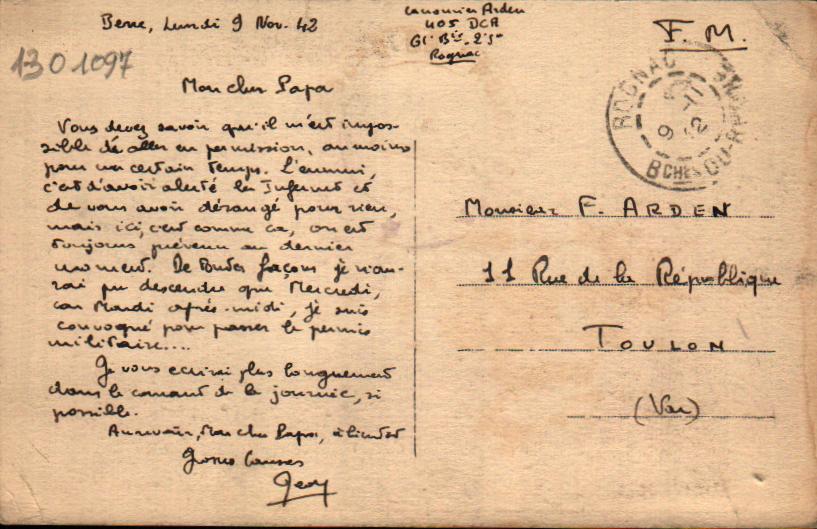 Berre, Lundi 9 Nov. 42
canonnier Arden
405 DCA
Gl Bie. 25"
Rognac
F. M.
1301097
Mon cher Papa
Vous devez savoir qu'il m'est impos-
sible de aller en permission, au moins
pour un certain temps. L'ennui,
c'est d'avoir alerté les Infernet et
de vous avoir dérangé pour rien,
mais ici, c'est comme ça, on est
toujours prévenu au dernier
moment. De toutes façons je n'au-
rai pu descendre que Mercredi,
car Mardi après-midi, je suis
convoqué pour passer le permis
militaire....
Je vous ecrirai plus longuement
dans le courant de la journée, si
possible.
Au revoir, Mon cher Papa, à bientôt
Grosses bauses
ROGNAC
9 -11
42
BCHES DU-RHONE
Monsieur F. ARDEN
11 Rue de la République
TOULON
(Var)